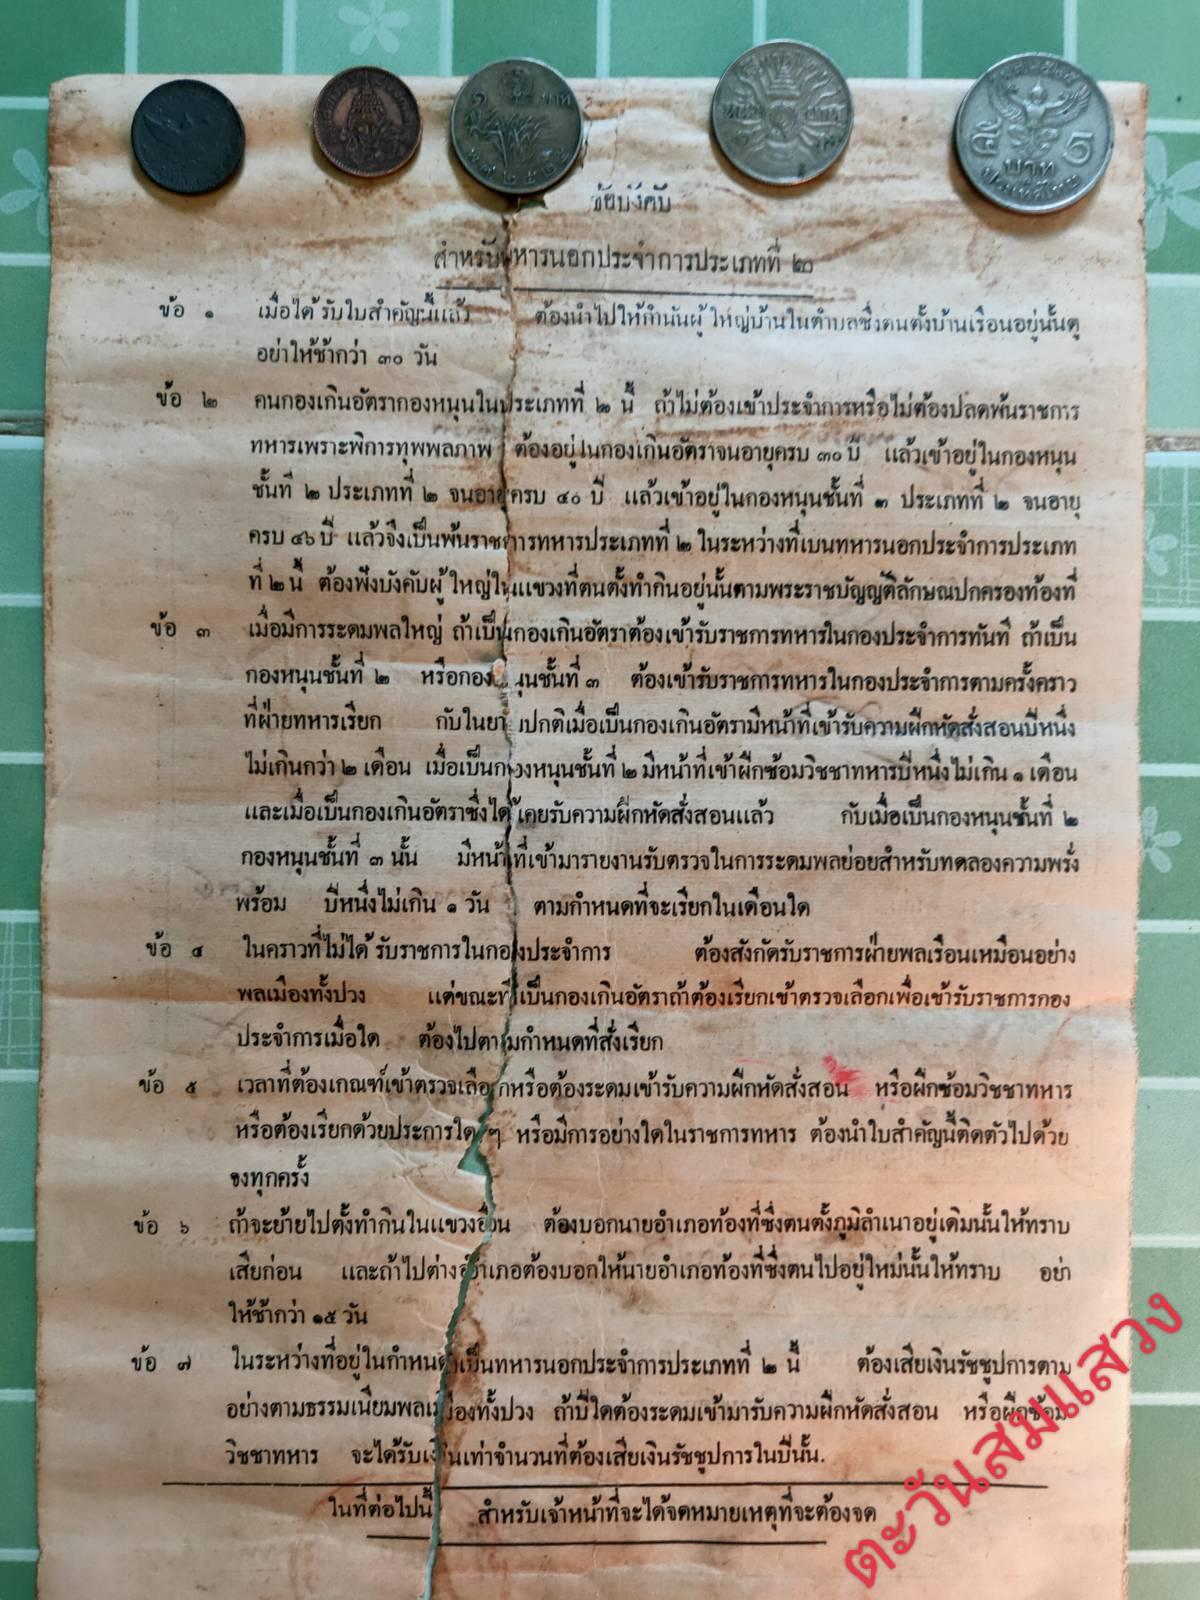 บาท
พ.ศ. ๒๕๒๕
หนึ่ง บาท
๕ บาท 5
ประเทศไทย
ข้อบังคับ
สำหรับทหารนอกประจำการประเภทที่ ๒
ข้อ ๑ เมื่อได้รับใบสำคัญนี้แล้ว ต้องนำไปให้กำนันผู้ใหญ่บ้านในตำบลซึ่งตนตั้งบ้านเรือนอยู่นั้นดู
อย่าให้ช้ากว่า ๓๐ วัน
ข้อ ๒ คนกองเกินอัตรากองหนุนในประเภทที่ ๒ นี้ ถ้าไม่ต้องเข้าประจำการหรือไม่ต้องปลดพ้นราชการ
ทหารเพราะพิการทุพพลภาพ ต้องอยู่ในกองเกินอัตราจนอายุครบ ๓๐ ปี แล้วเข้าอยู่ในกองหนุน
ชั้นที่ ๒ ประเภทที่ ๒ จนอายุครบ ๔๐ ปี แล้วเข้าอยู่ในกองหนุนชั้นที่ ๓ ประเภทที่ ๒ จนอายุ
ครบ ๔๖ ปี แล้วจึงเป็นพ้นราชการทหารประเภทที่ ๒ ในระหว่างที่เปนทหารนอกประจำการประเภท
ที่ ๒ นี้ ต้องฟังบังคับผู้ใหญ่ในแขวงที่ตนตั้งทำกินอยู่นั้นตามพระราชบัญญัติลักษณปกครองท้องที่
ข้อ ๓ เมื่อมีการระดมพลใหญ่ ถ้าเป็นกองเกินอัตราต้องเข้ารับราชการทหารในกองประจำการทันที ถ้าเป็น
กองหนุนชั้นที่ ๒ หรือกองหนุนชั้นที่ ๓ ต้องเข้ารับราชการทหารในกองประจำการตามครั้งคราว
ที่ฝ่ายทหารเรียก กับในยามปกติเมื่อเป็นกองเกินอัตรามีหน้าที่เข้ารับความฝึกหัดสั่งสอนปีหนึ่ง
ไม่เกินกว่า ๒ เดือน เมื่อเป็นกองหนุนชั้นที่ ๒ มีหน้าที่เข้าฝึกซ้อมวิชชาทหารปีหนึ่งไม่เกิน ๑ เดือน
และเมื่อเป็นกองเกินอัตราซึ่งได้เคยรับความฝึกหัดสั่งสอนแล้ว กับเมื่อเป็นกองหนุนชั้นที่ ๒
กองหนุนชั้นที่ ๓ นั้น มีหน้าที่เข้ามารายงานรับตรวจในการระดมพลย่อยสำหรับทดลองความพรั่ง
พร้อม ปีหนึ่งไม่เกิน ๑ วัน ตามกำหนดที่จะเรียกในเดือนใด
ข้อ ๔ ในคราวที่ไม่ได้รับราชการในกองประจำการ ต้องสังกัดรับราชการฝ่ายพลเรือนเหมือนอย่าง
พลเมืองทั้งปวง แต่ขณะที่เป็นกองเกินอัตราถ้าต้องเรียกเข้าตรวจเลือกเพื่อเข้ารับราชการกอง
ประจำการเมื่อใด ต้องไปตามกำหนดที่สั่งเรียก
ข้อ ๕ เวลาที่ต้องเกณฑ์เข้าตรวจเลือกหรือต้องระดมเข้ารับความฝึกหัดสั่งสอน หรือฝึกซ้อมวิชชาทหาร
หรือต้องเรียกด้วยประการใด ๆ หรือมีการอย่างใดในราชการทหาร ต้องนำใบสำคัญนี้ติดตัวไปด้วย
จงทุกครั้ง
ข้อ ๖ ถ้าจะย้ายไปตั้งทำกินในแขวงอื่น ต้องบอกนายอำเภอท้องที่ซึ่งตนตั้งภูมิลำเนาอยู่เดิมนั้นให้ทราบ
เสียก่อน และถ้าไปต่างอำเภอต้องบอกให้นายอำเภอท้องที่ซึ่งตนไปอยู่ใหม่นั้นให้ทราบ อย่า
ให้ช้ากว่า ๑๕ วัน
ข้อ ๗ ในระหว่างที่อยู่ในกำหนดเป็นทหารนอกประจำการประเภทที่ ๒ นี้ ต้องเสียเงินรัชชูปการตาม
อย่างตามธรรมเนียมพลเมืองทั้งปวง ถ้าปีใดต้องระดมเข้ามารับความฝึกหัดสั่งสอน หรือฝึกซ้อม
วิชชาทหาร จะได้รับเงินเท่าจำนวนที่ต้องเสียเงินรัชชูปการในปีนั้น.
ในที่ต่อไปนี้ สำหรับเจ้าหน้าที่จะได้จดหมายเหตุที่จะต้องจด
ตะวันสมแสวง